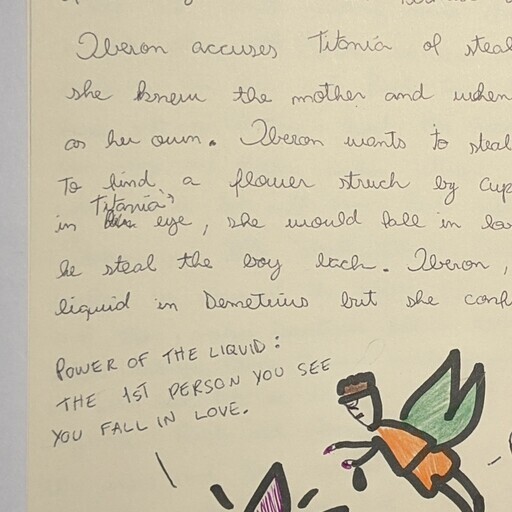 Oberon accuses Titania of steal
she knew the mother and when
as her own. Oberon wants to steal
to find a flower struck by Cup
Titania's
in eye, she would fall in lo
he steal the boy back. Oberon,
liquid in Demetrius but she conf
POWER OF THE LIQUID:
THE 1ST PERSON YOU SEE
YOU FALL IN LOVE.